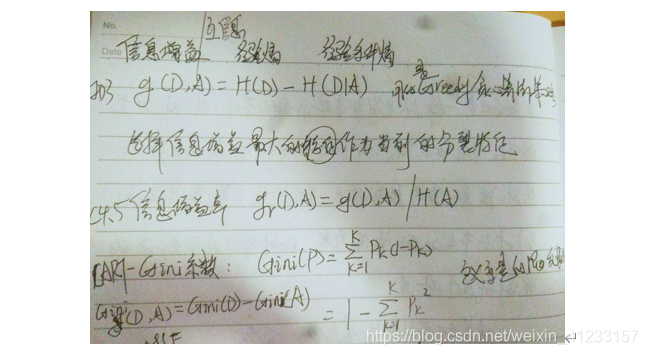 No.
互信息
Date 信息增益 经验熵 经验条件熵
ID3 g(D,A) = H(D) - H(D|A) Greedy
选择信息增益最大的特征作为当前的分裂特征
C4.5 信息增益率 gr(D,A) = g(D,A) / H(A)
CART-Gini系数: Gini(P) = ∑ K k=1 Pk(1-Pk)
(D,A) = Gini(D) - Gini(A) = 1 - ∑ K k=1 Pk²
https://blog.csdn.net/weixin_41233157